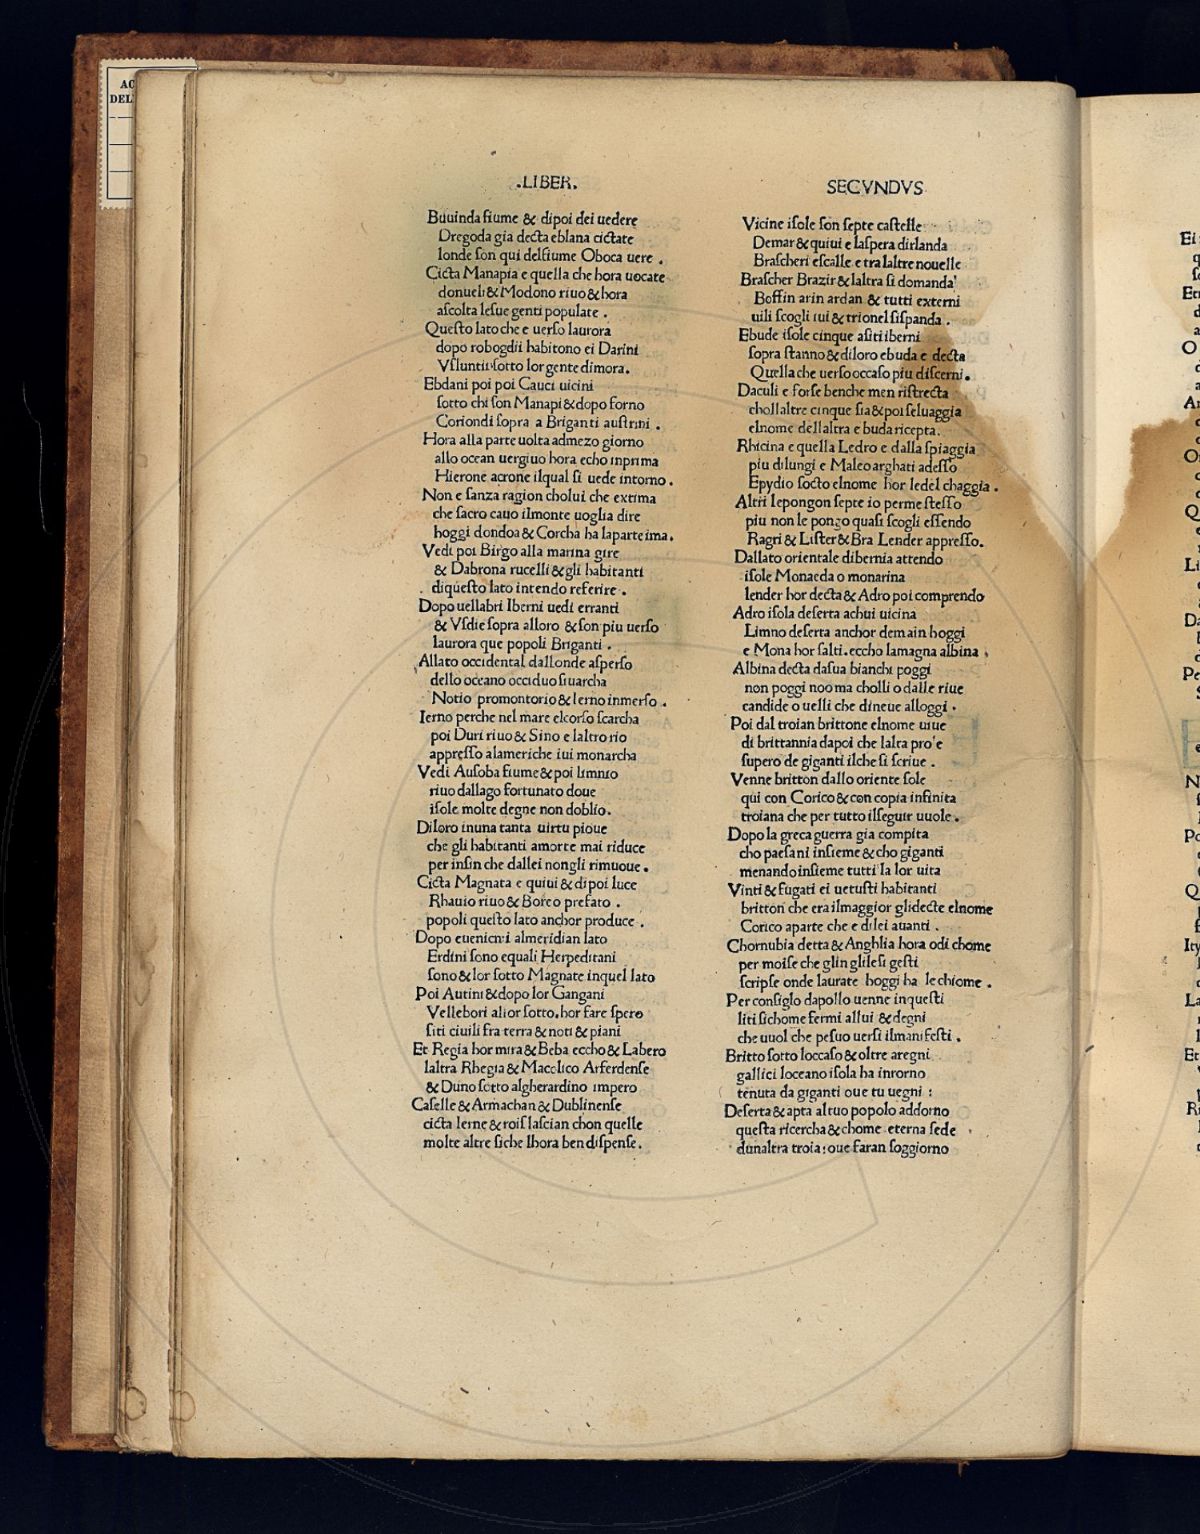 AC
DEL
.LIBER.
Buuinda fiume & dipoi dei uedere
Dregoda gia decta eblana cictate
londe son qui delfiume Oboca uere .
Cicta Manapia e quella che hora uocate
donueli & Modono riuo & hora
ascolta lesue genti populate .
Questo lato che e uerso laurora
dopo robogdii habitono ei Darini
Vsluntii sotto lor gente dimora.
Ebdani poi poi Cauci uicini
sotto chi son Manapi & dopo forno
Coriondi sopra a Briganti austrini .
Hora alla parte uolta admezo giorno
allo ocean uergiuo hora echo inprima
Hierone acrone ilqual si uede intorno .
Non e sanza ragion cholui che extima
che sacro cauo ilmonte uoglia dire
hoggi dondoa & Corcha ha laparte ima .
Vedi poi Birgo alla marina gire
& Dabrona rucelli & gli habitanti
diquesto lato intendo referire .
Dopo uellabri Iberni uedi erranti
& Vsdie sopra alloro & son piu uerso
laurora que popoli Briganti .
Allato occidental dallonde asperso
dello oceano occiduo si uarcha
Notio promontorio & Ierno inmerso .
Ierno perche nel mare elcorso scarcha
poi Duri riuo & Sino e laltro rio
appresso alameriche iui monarcha
Vedi Ausoba fiume & poi limnio
riuo dallago fortunato doue
isole molte degne non doblio .
Diloro inuna tanta uirtu pioue
che gli habitanti amorte mai riduce
per insin che dallei nongli rimuoue .
Cicta Magnata e quiui & dipoi luce
Rhauio riuo & Boreo prefato .
popoli questo lato anchor produce .
Dopo euenicnii almeridian lato
Erdini sono equali Herpeditani
sono & lor sotto Magnate inquel lato
Poi Autini & dopo lor Gangani
Vellebori alior sotto. hor fare spero
siti ciuili fra terra & noti & piani
Et Regia hor mira & Beba eccho & Labero
laltra Rhegia & Macolico Arferdense
& Duno sotto algherardino impero
Caselle & Armachan & Dublinense
cicta Ierne & rois lascian chon quelle
molte altre siche lhora ben dispense .
SECVNDVS
Vicine isole son septe castelle
Demar & quiui e laspera dirlanda
Brascheri escalle e tra laltre nouelle
Brascher Brazir & laltra si domanda
Boffin arin ardan & tutti externi
uili scogli iui & trionel sispanda .
Ebude isole cinque asiti iberni
sopra stanno & diloro ebuda e decta
Quella che uerso occaso piu discerni .
Daculi e forse benche men ristrecta
chollaltre cinque sia & poi seluaggia
elnome dellaltra e buda ricepta .
Rhicina e quella Ledro e dalla spiaggia
piu dilungi e Maleo arghati adesso
Epydio socto elnome hor ledel chaggia .
Altri lepongon septe io permestesso
piu non le pongo quasi scogli essendo
Ragri & Lister & Bra Lender appresso.
Dallato orientale dibernia attendo
isole Monaeda o monarina
lender hor decta & Adro poi comprendo
Adro isola deserta achui uicina
Limno deserta anchor demain hoggi
e Mona hor salti. eccho lamagna albina ,
Albina decta dasua bianchi poggi
non poggi noo ma cholli o dalle riue
candide o uelli che dineue alloggi .
Poi dal troian brittone elnome uiue
di brittannia dapoi che lalta pro'e
supero de giganti ilche si scriue .
Venne britton dallo oriente sole
qui con Corico & con copia infinita
troiana che per tutto ilseguir uuole .
Dopo la greca guerra gia compita
cho paesani insieme & cho giganti
menando insieme tutti la lor uita
Vinti & fugati ei uetusti habitanti
britton che era ilmaggior glidecte elnome
Corico aparte che e dilei auanti .
Chornubia detta & Anghlia hora odi chome
per moise che glinglilesi gesti
scripse onde laurate hoggi ha lechiome .
Per consiglo dapollo uenne inquesti
liti sichome fermi allui & degni
che uuol che pesuo uersi ilmanifesti .
Britto sotto loccaso & oltre aregni
gallici loceano isola ha inrorno
tenuta da giganti oue tu uegni :
Deserta & apta al tuo popolo addorno
questa ricercha & chome eterna sede
dunaltra troia: oue faran soggiorno